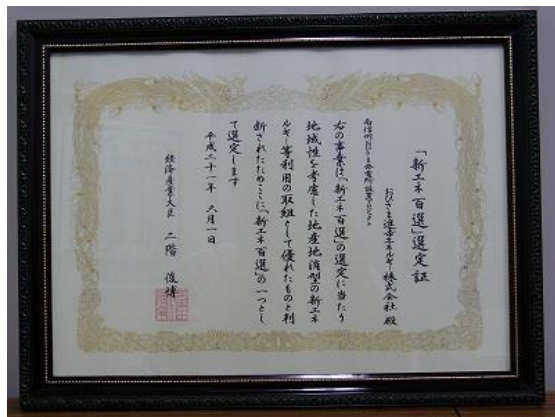 「新エネ百選」選定証
おひさま進歩エネルギー株式会社 殿
南信州おひさま発電所設置プロジェクト
右の事業は「新エネ百選」の選定に当たり
地域性を考慮した地産地消型の新エネ
ルギー等利用の取組として優れたものと判
断されたためここに「新エネ百選」の一つとし
て選定します
平成二十一年 六月一日
経済産業大臣 二階 俊博